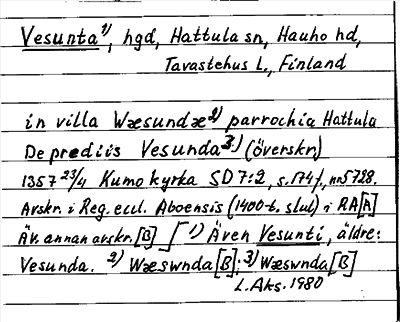 Vesunta 1), hgd, Hattula sn, Hauho hd,
Tavastehus L., Finland
in villa Wæsundæ 2) parrochia Hattula
De prediis Vesunda 3.) (överskr.)
1357 23/4 Kumo kyrka SD 7:2, s.174f, nr 5728.
Avskr. i Reg. eccl. Aboensis (1400-t. slut) i RA [A]
Äv. annan avskr. [B] 1) Även Vesunti, äldre:
Vesunda. 2) Wæswnda [B]. 3) Wæswnda [B]
L. Aks. 1980